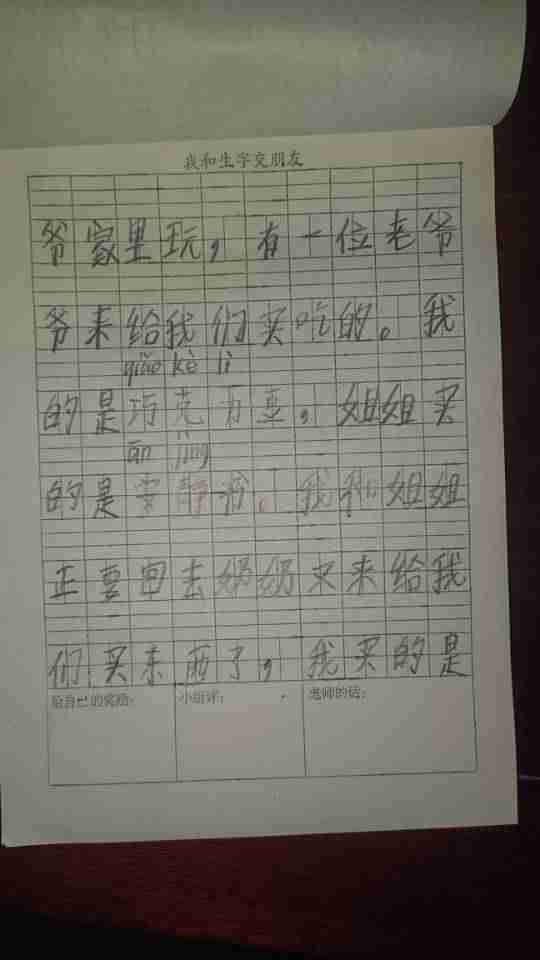 我和生字交朋友
爷家里玩，有一位老爷
爷来给我们买吃的。我
qiǎo kè lì
的是巧克力豆，姐姐买
ān jìng
的是安静
。我和姐姐
正要回去奶奶又来给我
们买东西了，我买的是
给自己的奖励：
小组评：
老师的话：